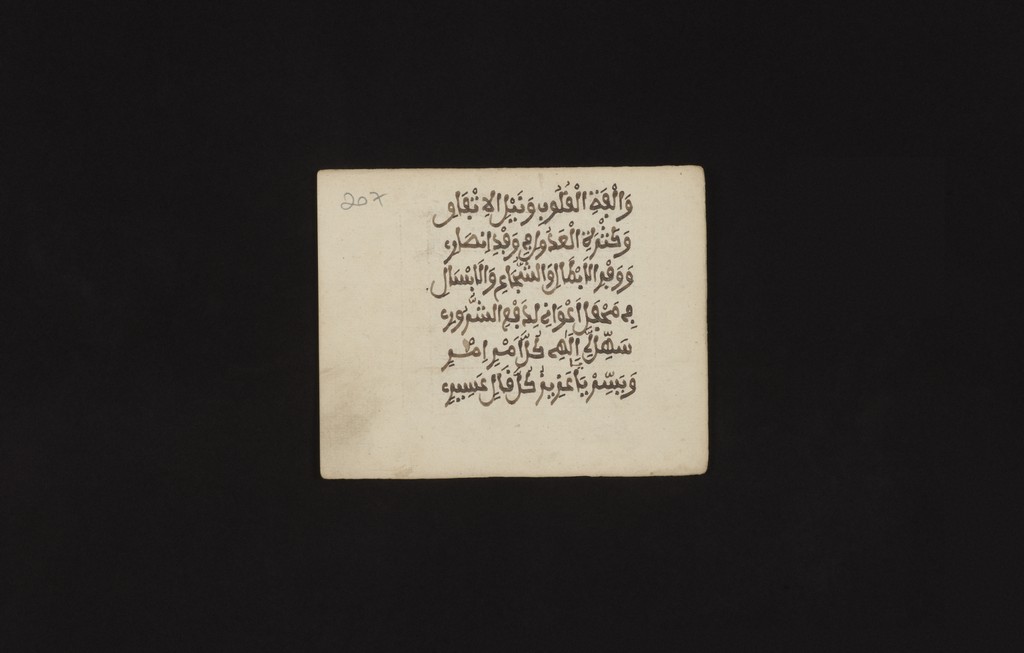 207
وَالْفَةِ الْقُلُوبِ وَنَيْلِ الِاتْفَاقِ
وَكَثْرَةِ الْعَدُوِّ فِي وَقْدِ انْصَارِ
وَوَفْرِ الْاَبْطَالِ وَالشُّجَاعِ وَالْاَبْسَالِ
فِي مَحْفَلِ اَعْوَانِ لِدَفْعِ الشُّرُورِ
سَهِّلْ لِي اِلَهِي كُلَّ اَمْرٍ اِمْرٍ
وَيَسِّرْ يَا عَزِيزُ كُلَّ عَسِيرِ